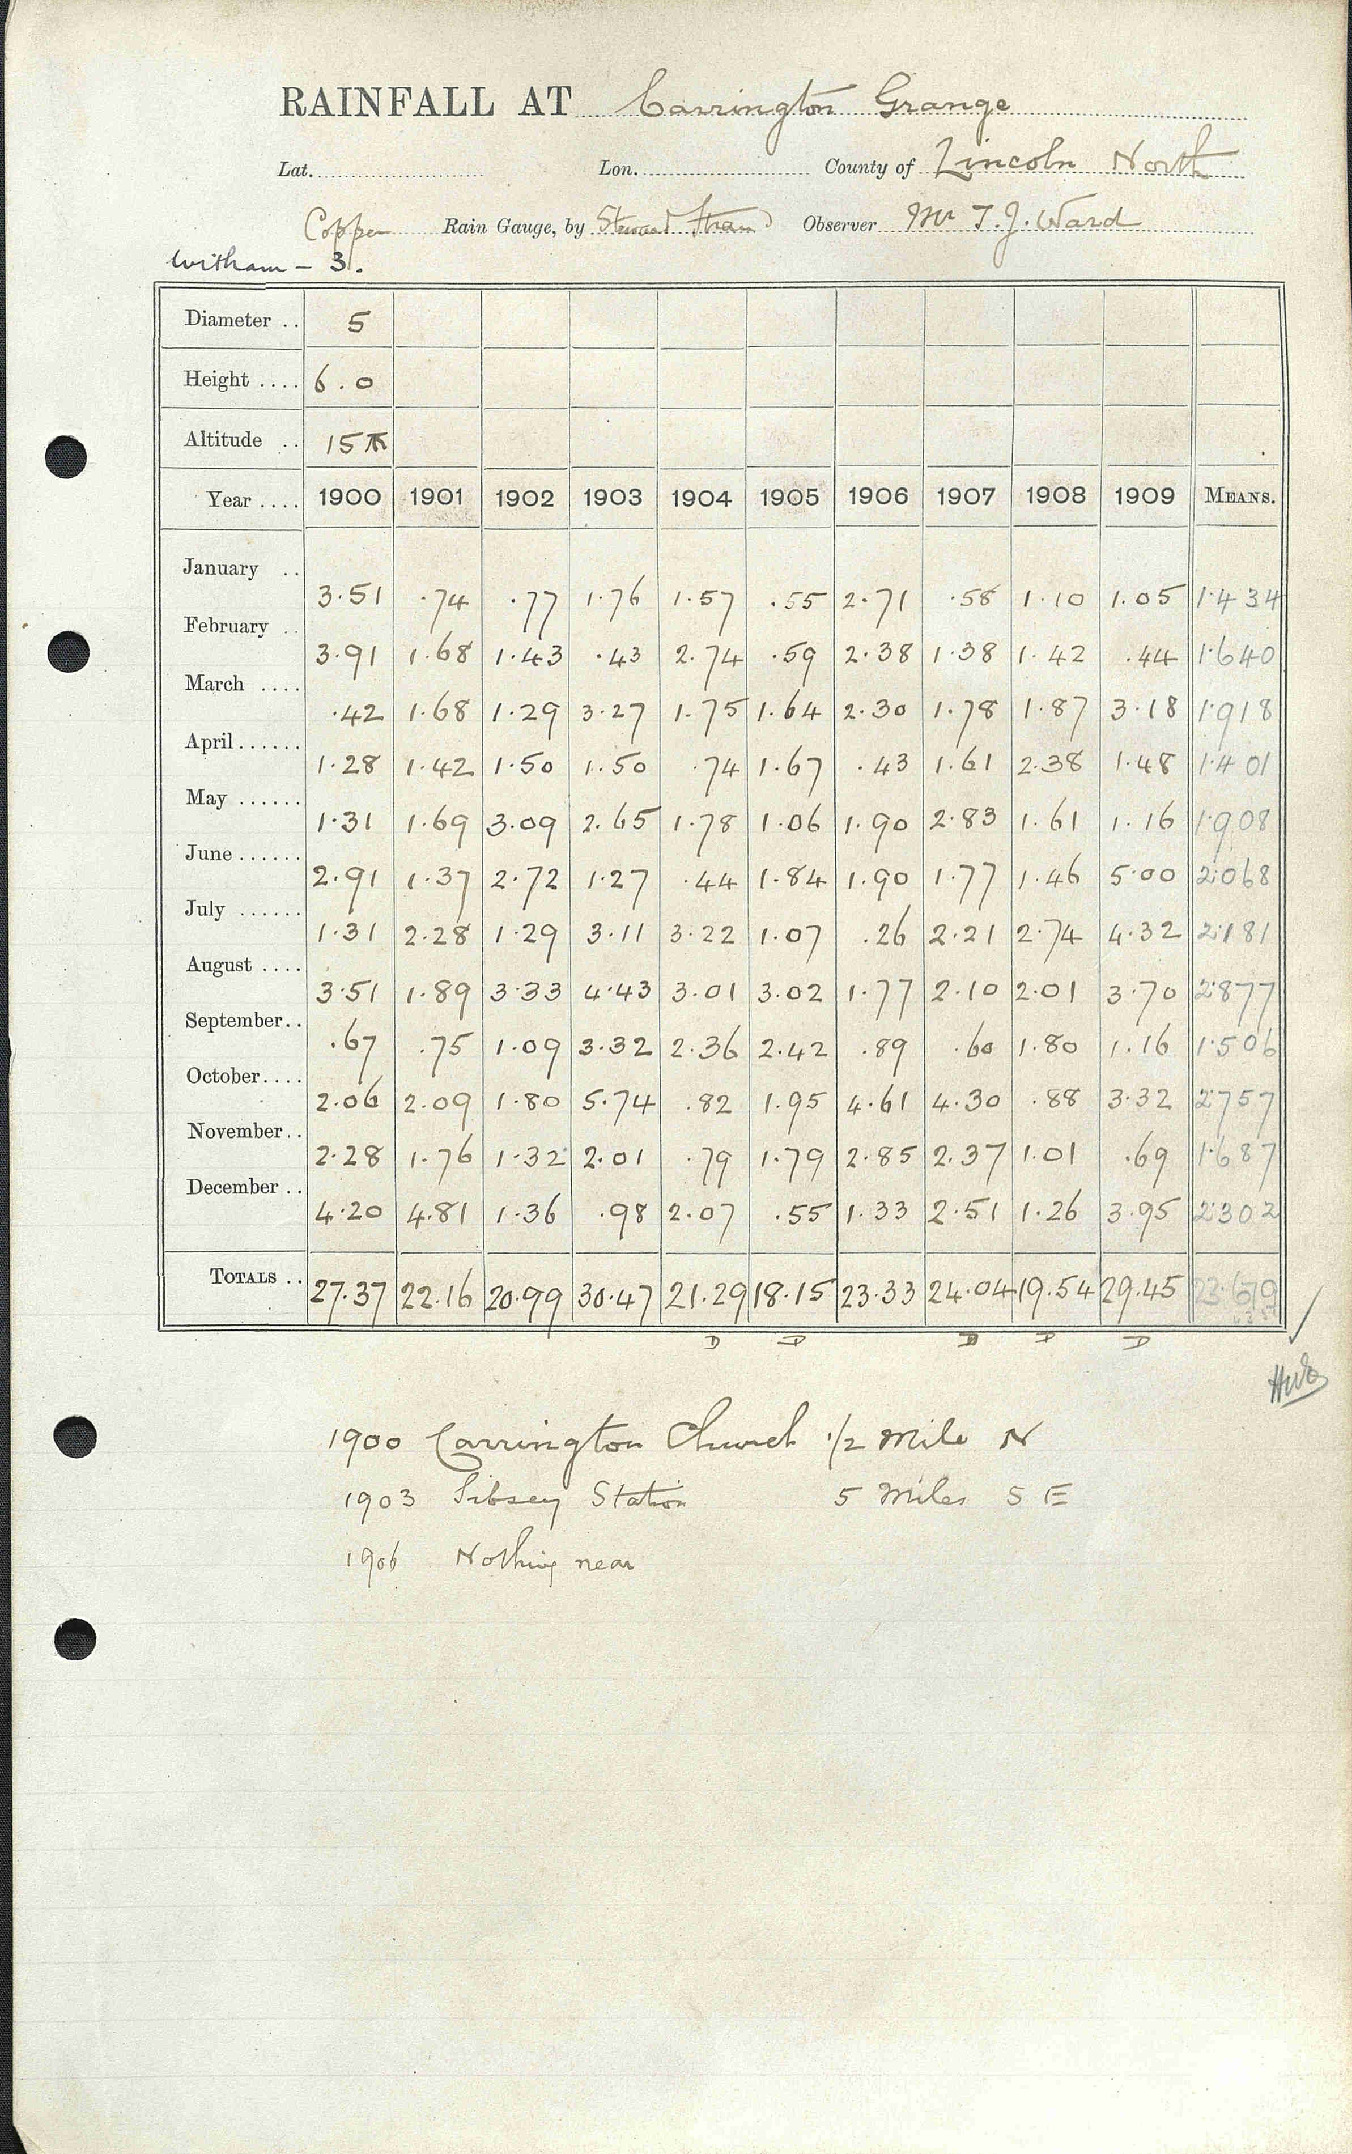 RAINFALL AT Carrington Grange
Lat. Lon. County of Lincoln North
Copper Rain Gauge, by Steward Strand Observer Mr T. J. Ward
Witham - 3.
Diameter .. 5
Height .... 6.0
Altitude .. 15 ft
Year .... 1900 1901 1902 1903 1904 1905 1906 1907 1908 1909 MEANS.
January .. 3.51 .74 .77 1.76 1.57 .55 2.71 .58 1.10 1.05 1.434
February .. 3.91 1.68 1.43 .43 2.74 .59 2.38 1.38 1.42 .44 1.640
March .... .42 1.68 1.29 3.27 1.75 1.64 2.30 1.78 1.87 3.18 1.918
April ...... 1.28 1.42 1.50 1.50 .74 1.67 .43 1.61 2.38 1.48 1.401
May ...... 1.31 1.69 3.09 2.65 1.78 1.06 1.90 2.83 1.61 1.16 1.908
June ...... 2.91 1.37 2.72 1.27 .44 1.84 1.90 1.77 1.46 5.00 2.068
July ...... 1.31 2.28 1.29 3.11 3.22 1.07 .26 2.21 2.74 4.32 2.181
August .... 3.51 1.89 3.33 4.43 3.01 3.02 1.77 2.10 2.01 3.70 2.877
September .. .67 .75 1.09 3.32 2.36 2.42 .89 .60 1.80 1.16 1.506
October .... 2.06 2.09 1.80 5.74 .82 1.95 4.61 4.30 .88 3.32 2.757
November .. 2.28 1.76 1.32 2.01 .79 1.79 2.85 2.37 1.01 .69 1.687
December .. 4.20 4.81 1.36 .98 2.07 .55 1.33 2.51 1.26 3.95 2.302
TOTALS .. 27.37 22.16 20.99 30.47 21.29 18.15 23.33 24.04 19.54 29.45 23.679
D D D D D
1900 Carrington Church 1/2 Mile N
1903 Sibsey Station 5 Miles S E
1906 Nothing near